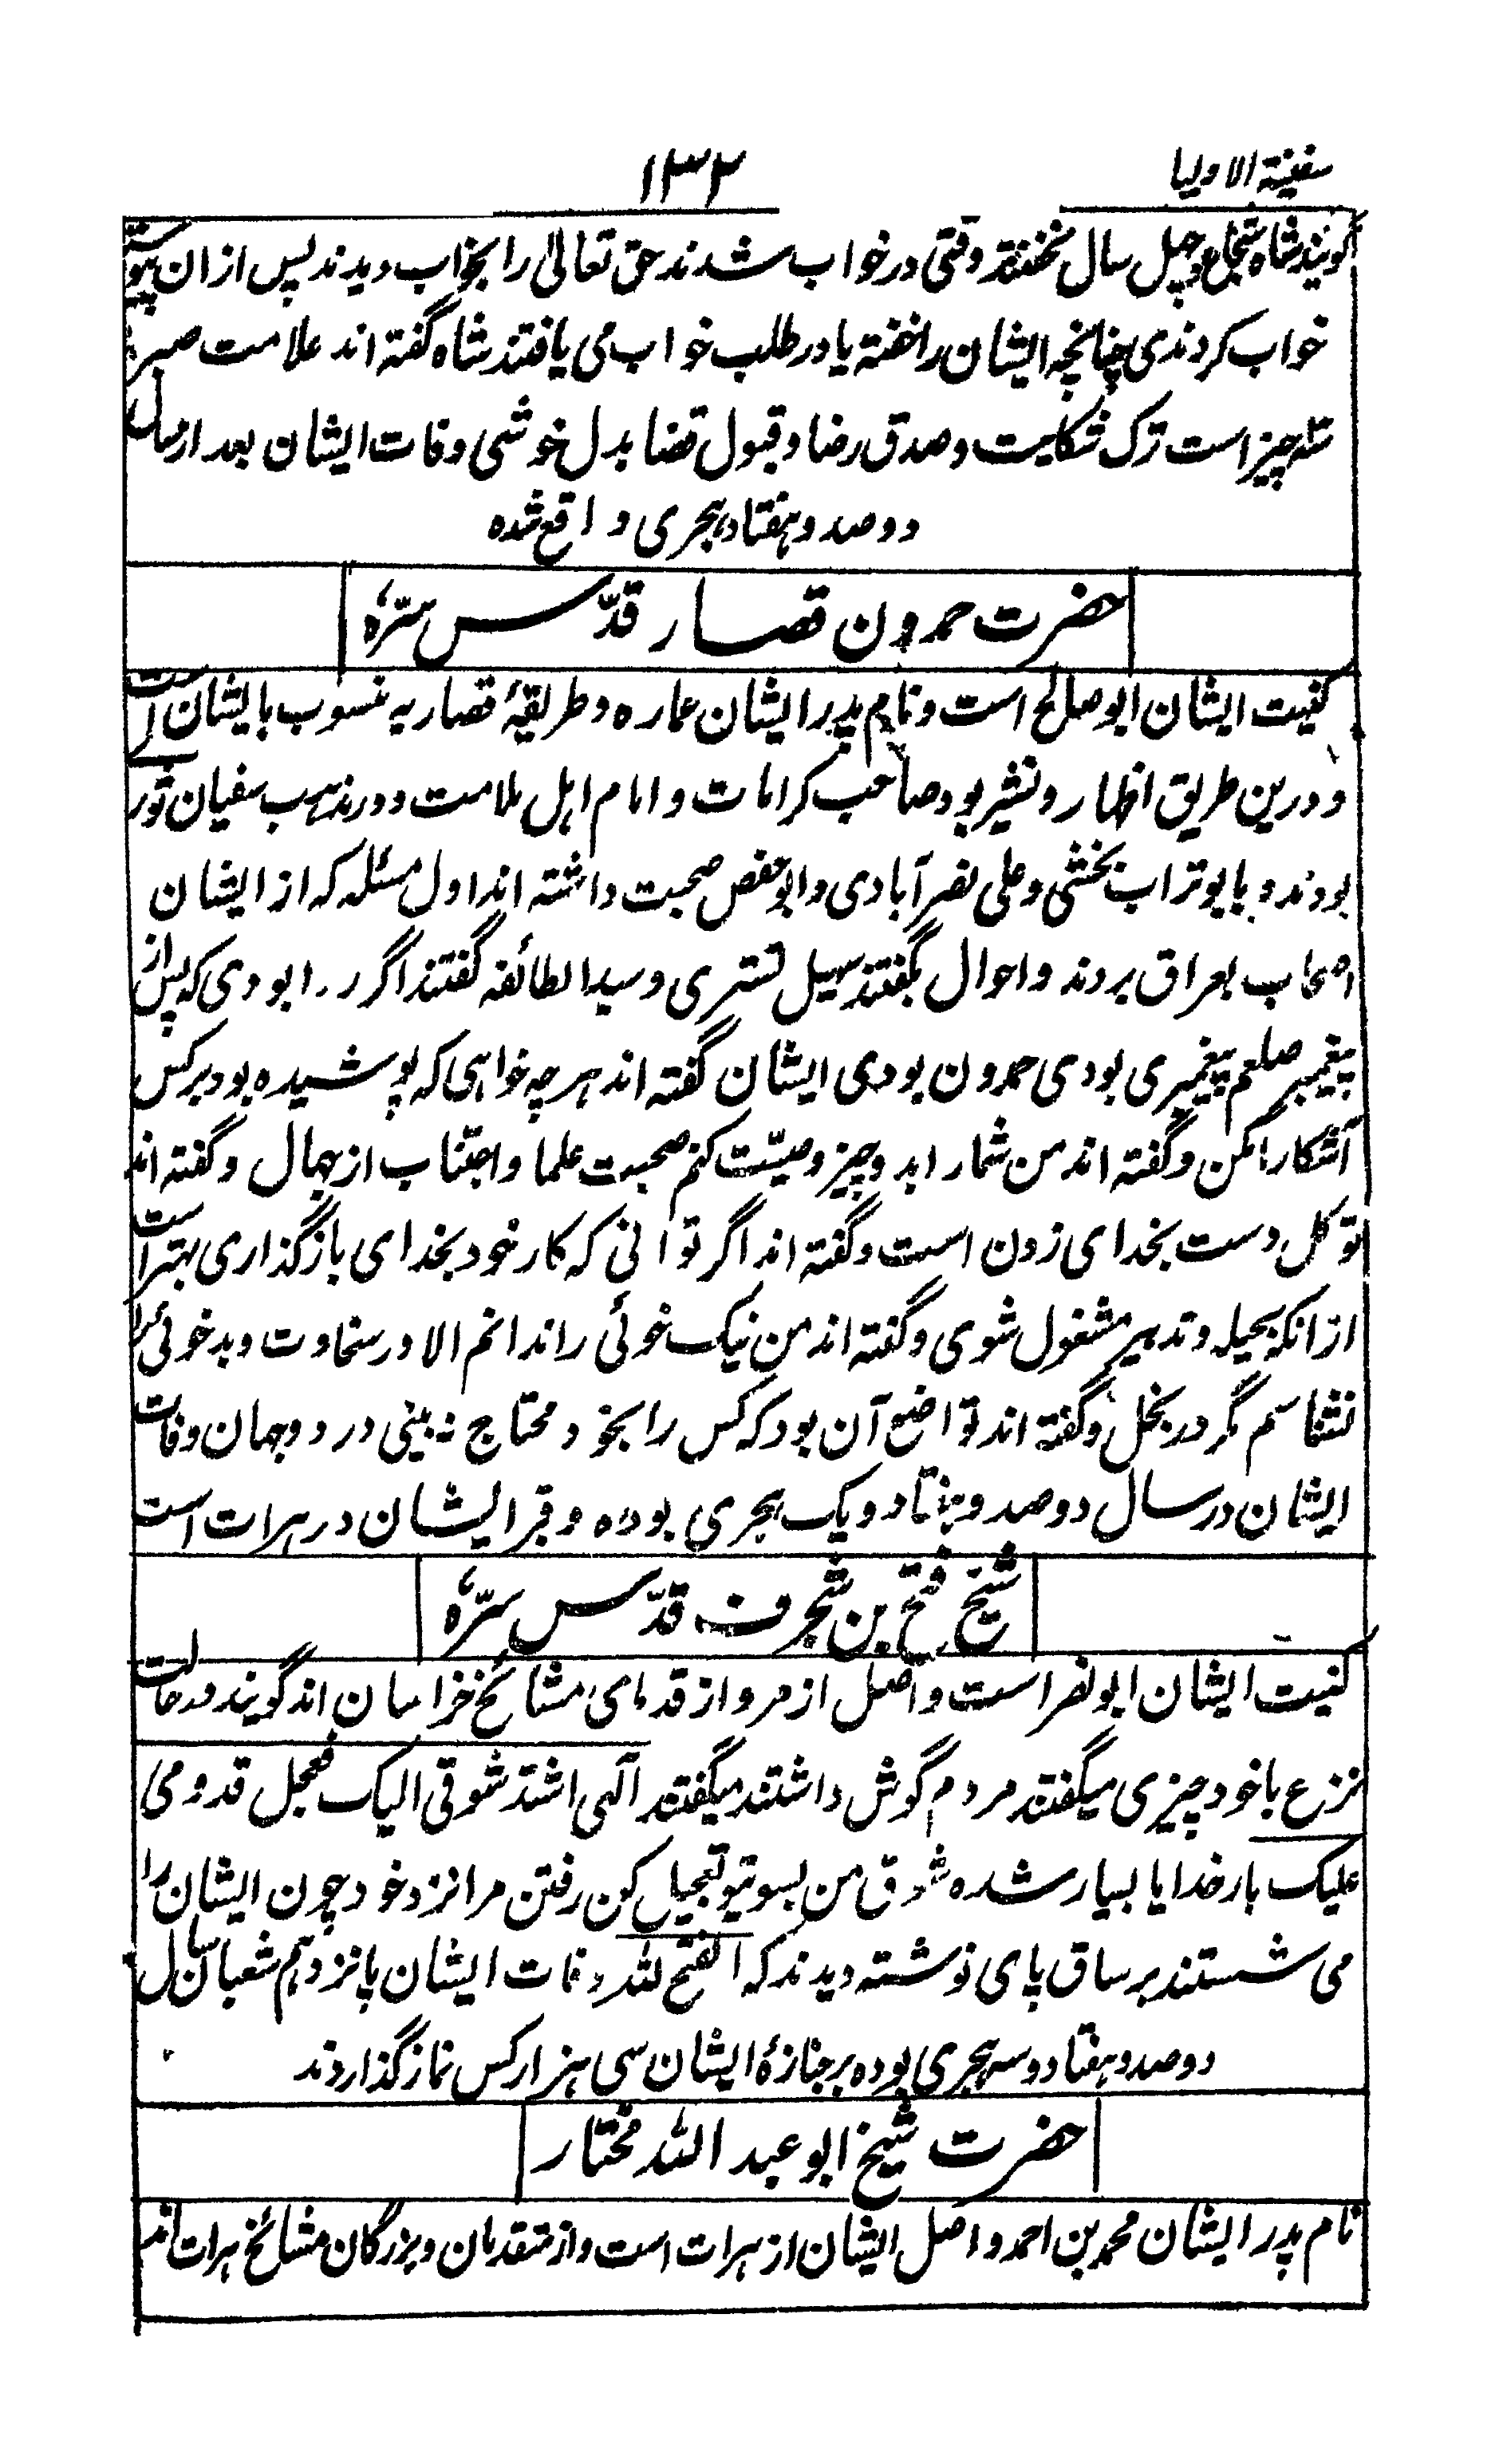 سفینة الاولیا
۱۳۲
گویند شاه شجاع چهل سال نخفتند وقتی در خواب شدند حق تعالیٰ را بخواب دیدند پس ازان پیوسته
خواب کردندی چنانچه ایشان را خفته یا در طلب خواب می یافتند شاه گفته اند علامت صبر
سه چیز است ترک شکایت و صدق رضا و قبول قضا بدل خوشی وفات ایشان بعد از سال
دوصد و هفتاد هجری واقع شده
حضرت حمدون قصار قدّس سرّهٗ
کنیت ایشان ابو صالح است و نام پدر ایشان عماره و طریقهٔ قصاریه منسوب بایشان است
و درین طریق اظهار و نشیر بود صاحب کرامات و امام اهل ملامت و در مذهب سفیان ثور
بودند و با بوتراب نخشبی و علی نصرآبادی و ابوحفص صحبت داشته اند اول مسئله که از ایشان
اصحاب بعراق بردند و احوال بگفتند سهیل تستری و سید الطائفه گفتند اگر روا بودی که پس از
پیغمبر صلعم پیغمبری بودی حمدون بودی ایشان گفته اند هر چه خواهی که پوشیده بود بر کس
آشکارا مکن و گفته اند من شما را بدو چیز وصیّت کنم صحبت علما و اجتناب از جهال و گفته اند
توکل دست بخدای زدن است و گفته اند اگر توانی که کار خود بخدای بازگذاری بهتر است
از انکه بحیله و تدبیر مشغول شوی و گفته اند من نیک خوئی را ندانم الا در سخاوت و بدخوئی را
نشناسم مگر در بخل و گفته اند تواضع آن بود که کس را بخود محتاج نه بینی در دو جهان وفات
ایشان در سال دوصد و هفتاد و یک هجری بوده و قبر ایشان در هرات است
شیخ فتح بن شخرف قدّس سرّهٗ
کنیت ایشان ابونصر است و اصل از مرو از قدمای مشائخ خراسان اند گویند در حالت
نزع با خود چیزی میگفتند مردم گوش داشتند میگفتند آلهی اشتد شوقی الیک فعجل قدومی
علیک بار خدایا بسیار شده شوق من بسوی تو تعجیل کن رفتن مرا نزد خود چون ایشان را
می شستند بر ساق پای نوشته دیدند که الفتح لله وفات ایشان پانزدهم شعبان سال
دوصد و هفتاد و سه هجری بوده بر جنازهٔ ایشان سی هزار کس نماز گذاردند
حضرت شیخ ابو عبد الله مختار
نام پدر ایشان محمد بن احمد و اصل ایشان از هرات است و از متقدمان و بزرگان مشائخ هرات اند